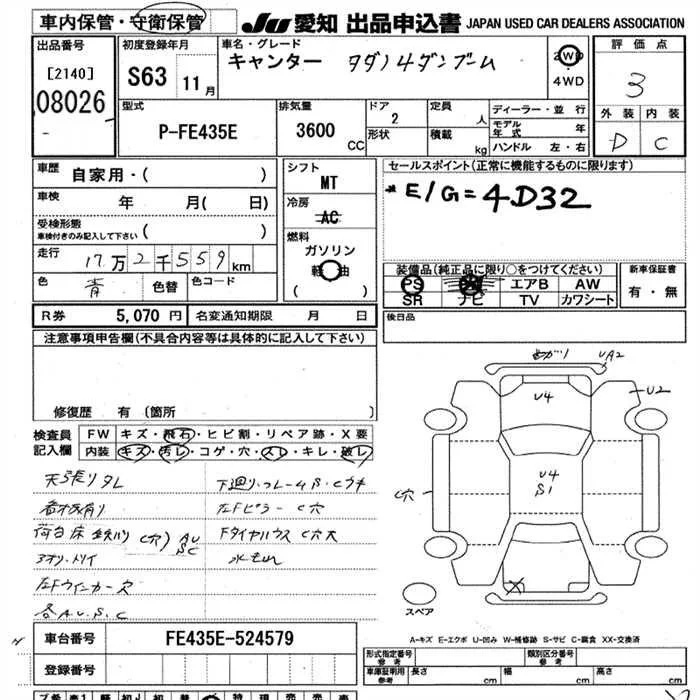 車内保管・守衛保管
JU 愛知 出品申込書 JAPAN USED CAR DEALERS ASSOCIATION
出品番号
[2140]
08026
初度登録年月
S63 11月
車名・グレード
キャンター タダノ4ダンブーム
2WD
4WD
評価点
3
外装 内装
D C
型式
P-FE435E
排気量
3600 CC
ドア
2
形状
定員
人
積載
kg
ディーラー・並行
モデル年式 年
ハンドル 左・右
車歴
自家用・( )
車検
年 月( 日)
受検形態
車検付きのみ記入して下さい ( )
走行
17万2千559km
色
青
色替
色コード
シフト
MT
冷房
AC
燃料
ガソリン
軽油
( )
セールスポイント(正常に機能するものに限ります)
* E/G=4D32
装備品(純正品に限り○をつけてください)
PS ナビ エアB AW
SR TV カワシート
新車保証書
有・無
R券 5,070円 名変通知期限 月 日
後日品
注意事項申告欄(不具合内容等は具体的に記入して下さい)
修復歴 有〔箇所 〕
検査員記入欄
FW キズ・飛石・ヒビ割・リペア跡・X要
内装 キズ・汚レ・コゲ・穴・スレ・キレ・破レ
天張りタレ
下廻り・フレームS.Cウキ
看板有り
左Fピラー C穴
荷台床鉄板バリ C穴) AU SC
FタイヤハウスC穴大
アオリ・トイ
水もれ
左Fウインカー穴
各A.U.S.C
UA2
U4
U2
U4
S1
C穴
X
スペア
A-キズ E-エクボ U-凹み W-補修跡 S-サビ C-腐食 XX-交換済
車台番号 FE435E-524579
登録番号
形式指定番号 参考
類別区分番号 参考
車庫証明用 参考 長さ 幅 高さ
cm cm